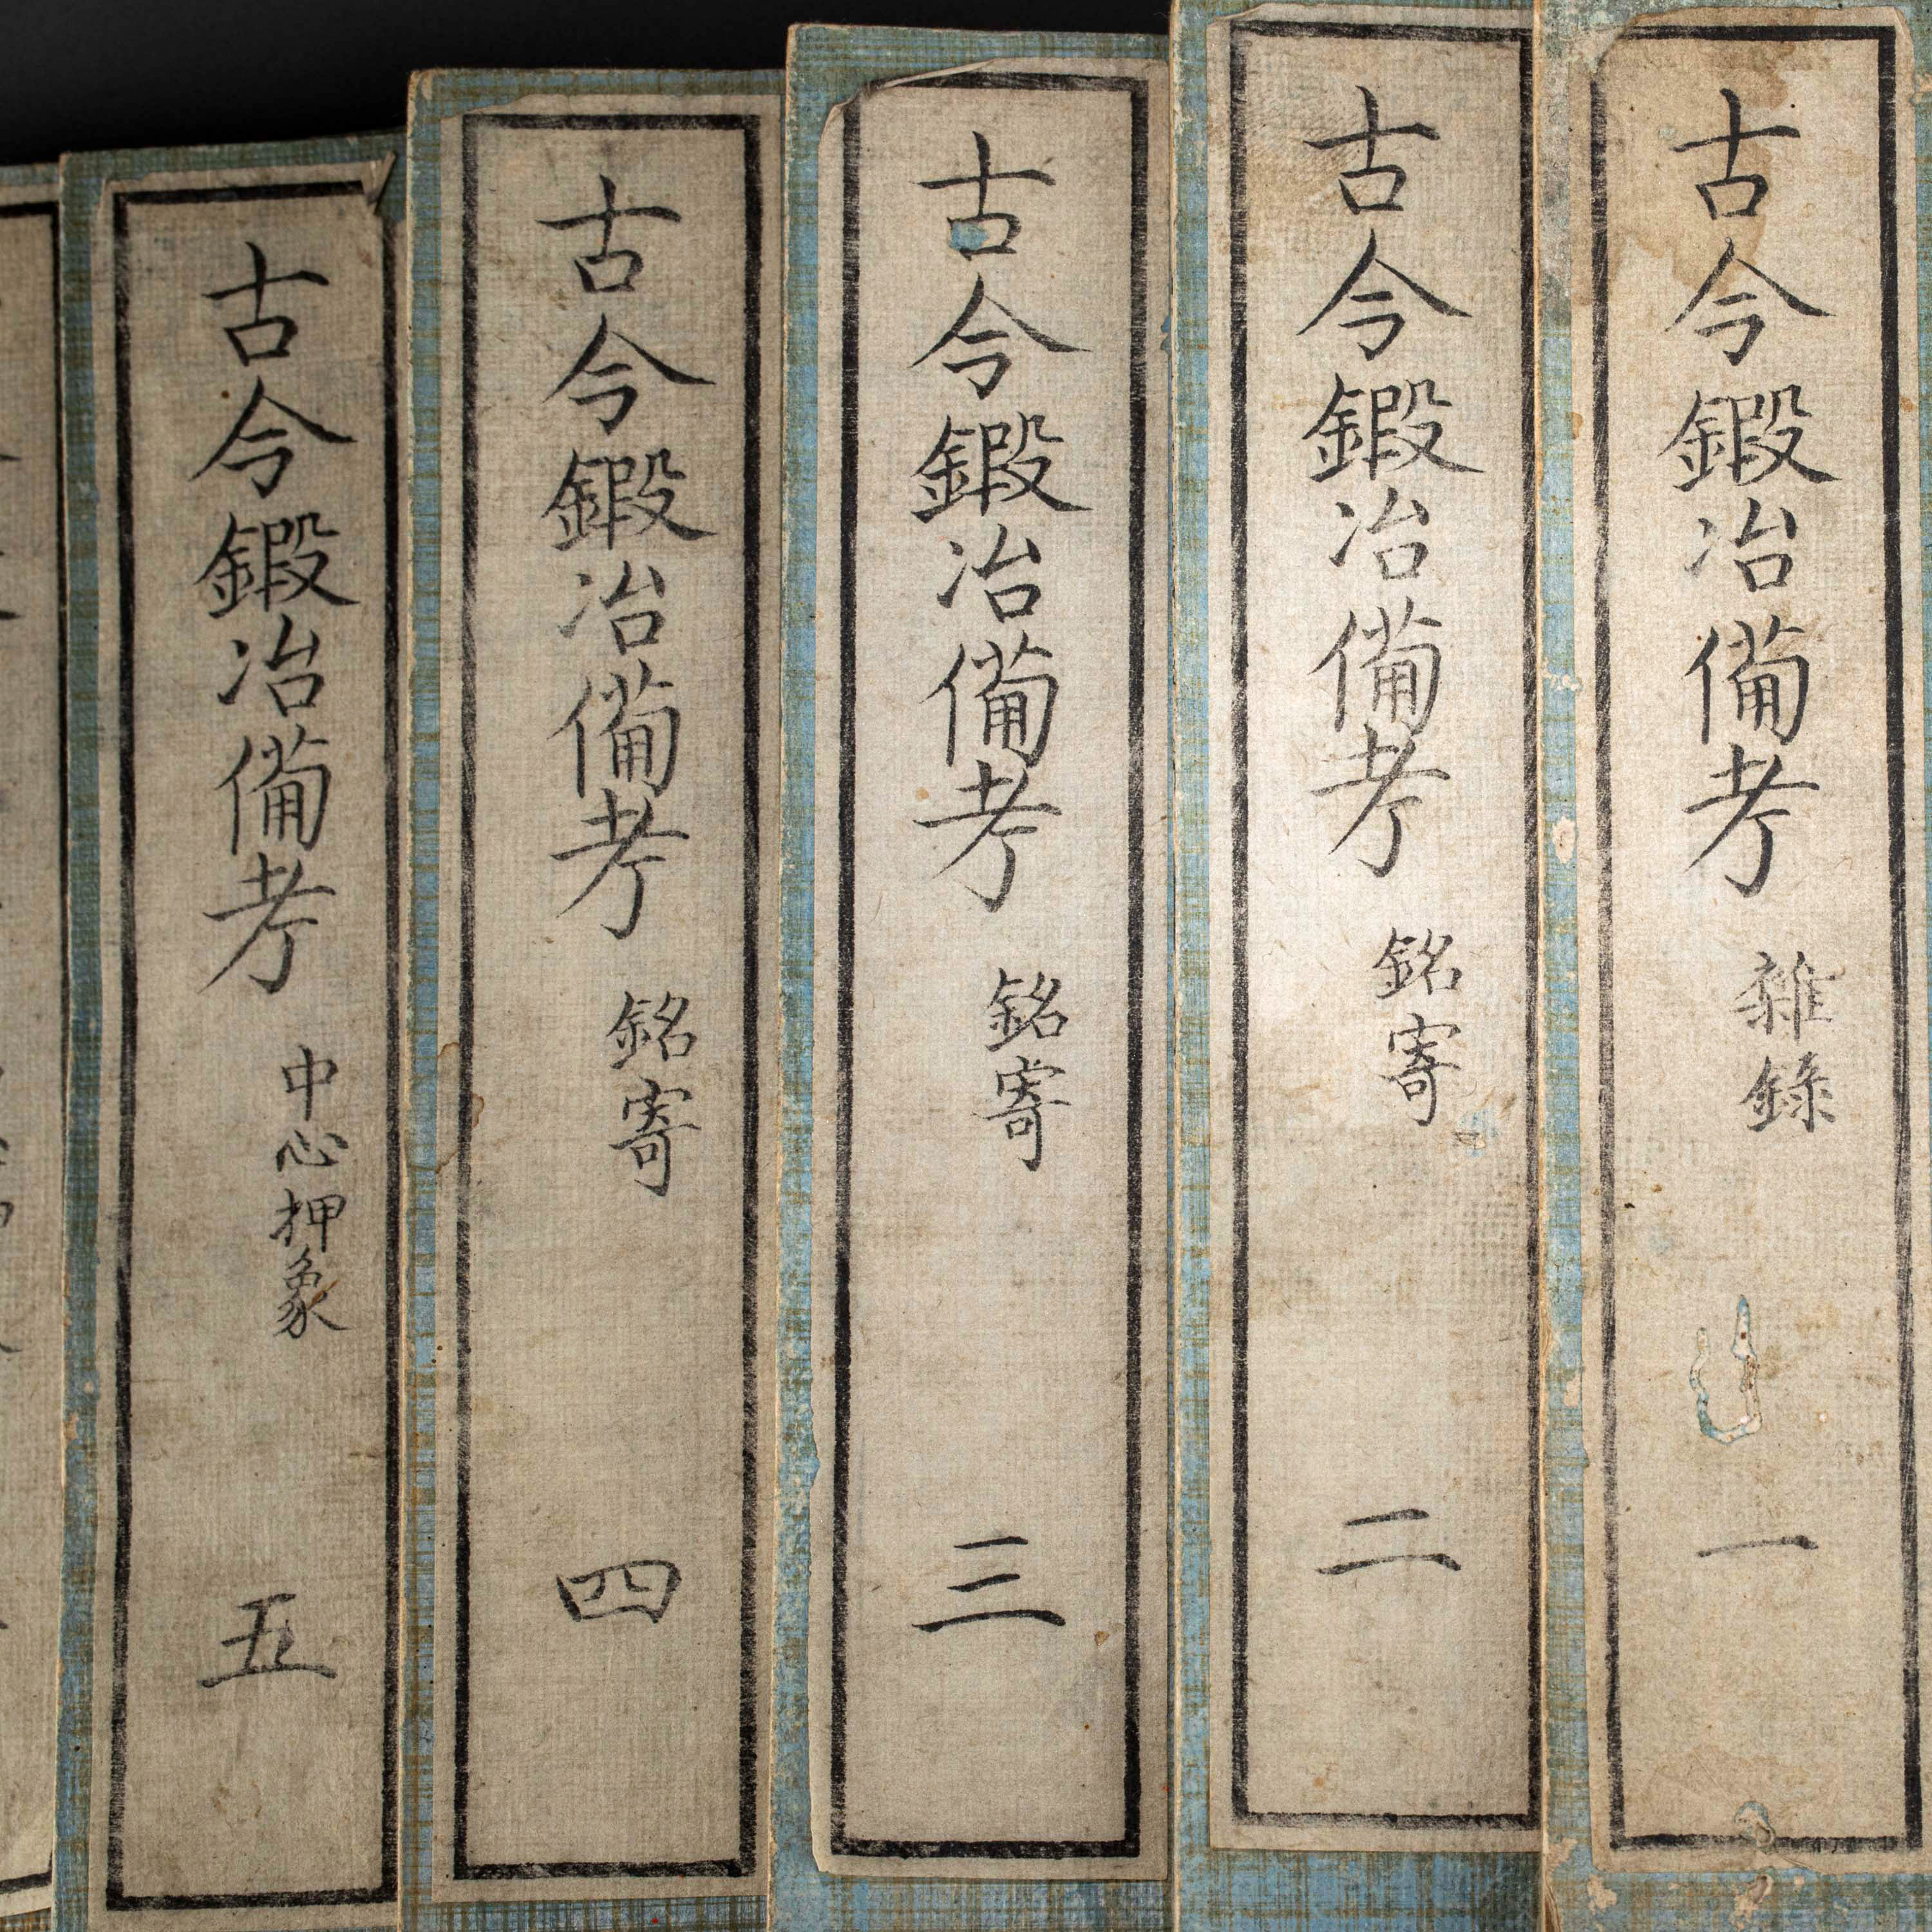 古今鍛冶備考 雜錄 一
古今鍛冶備考 銘寄 二
古今鍛冶備考 銘寄 三
古今鍛冶備考 銘寄 四
古今鍛冶備考 中心押象 五